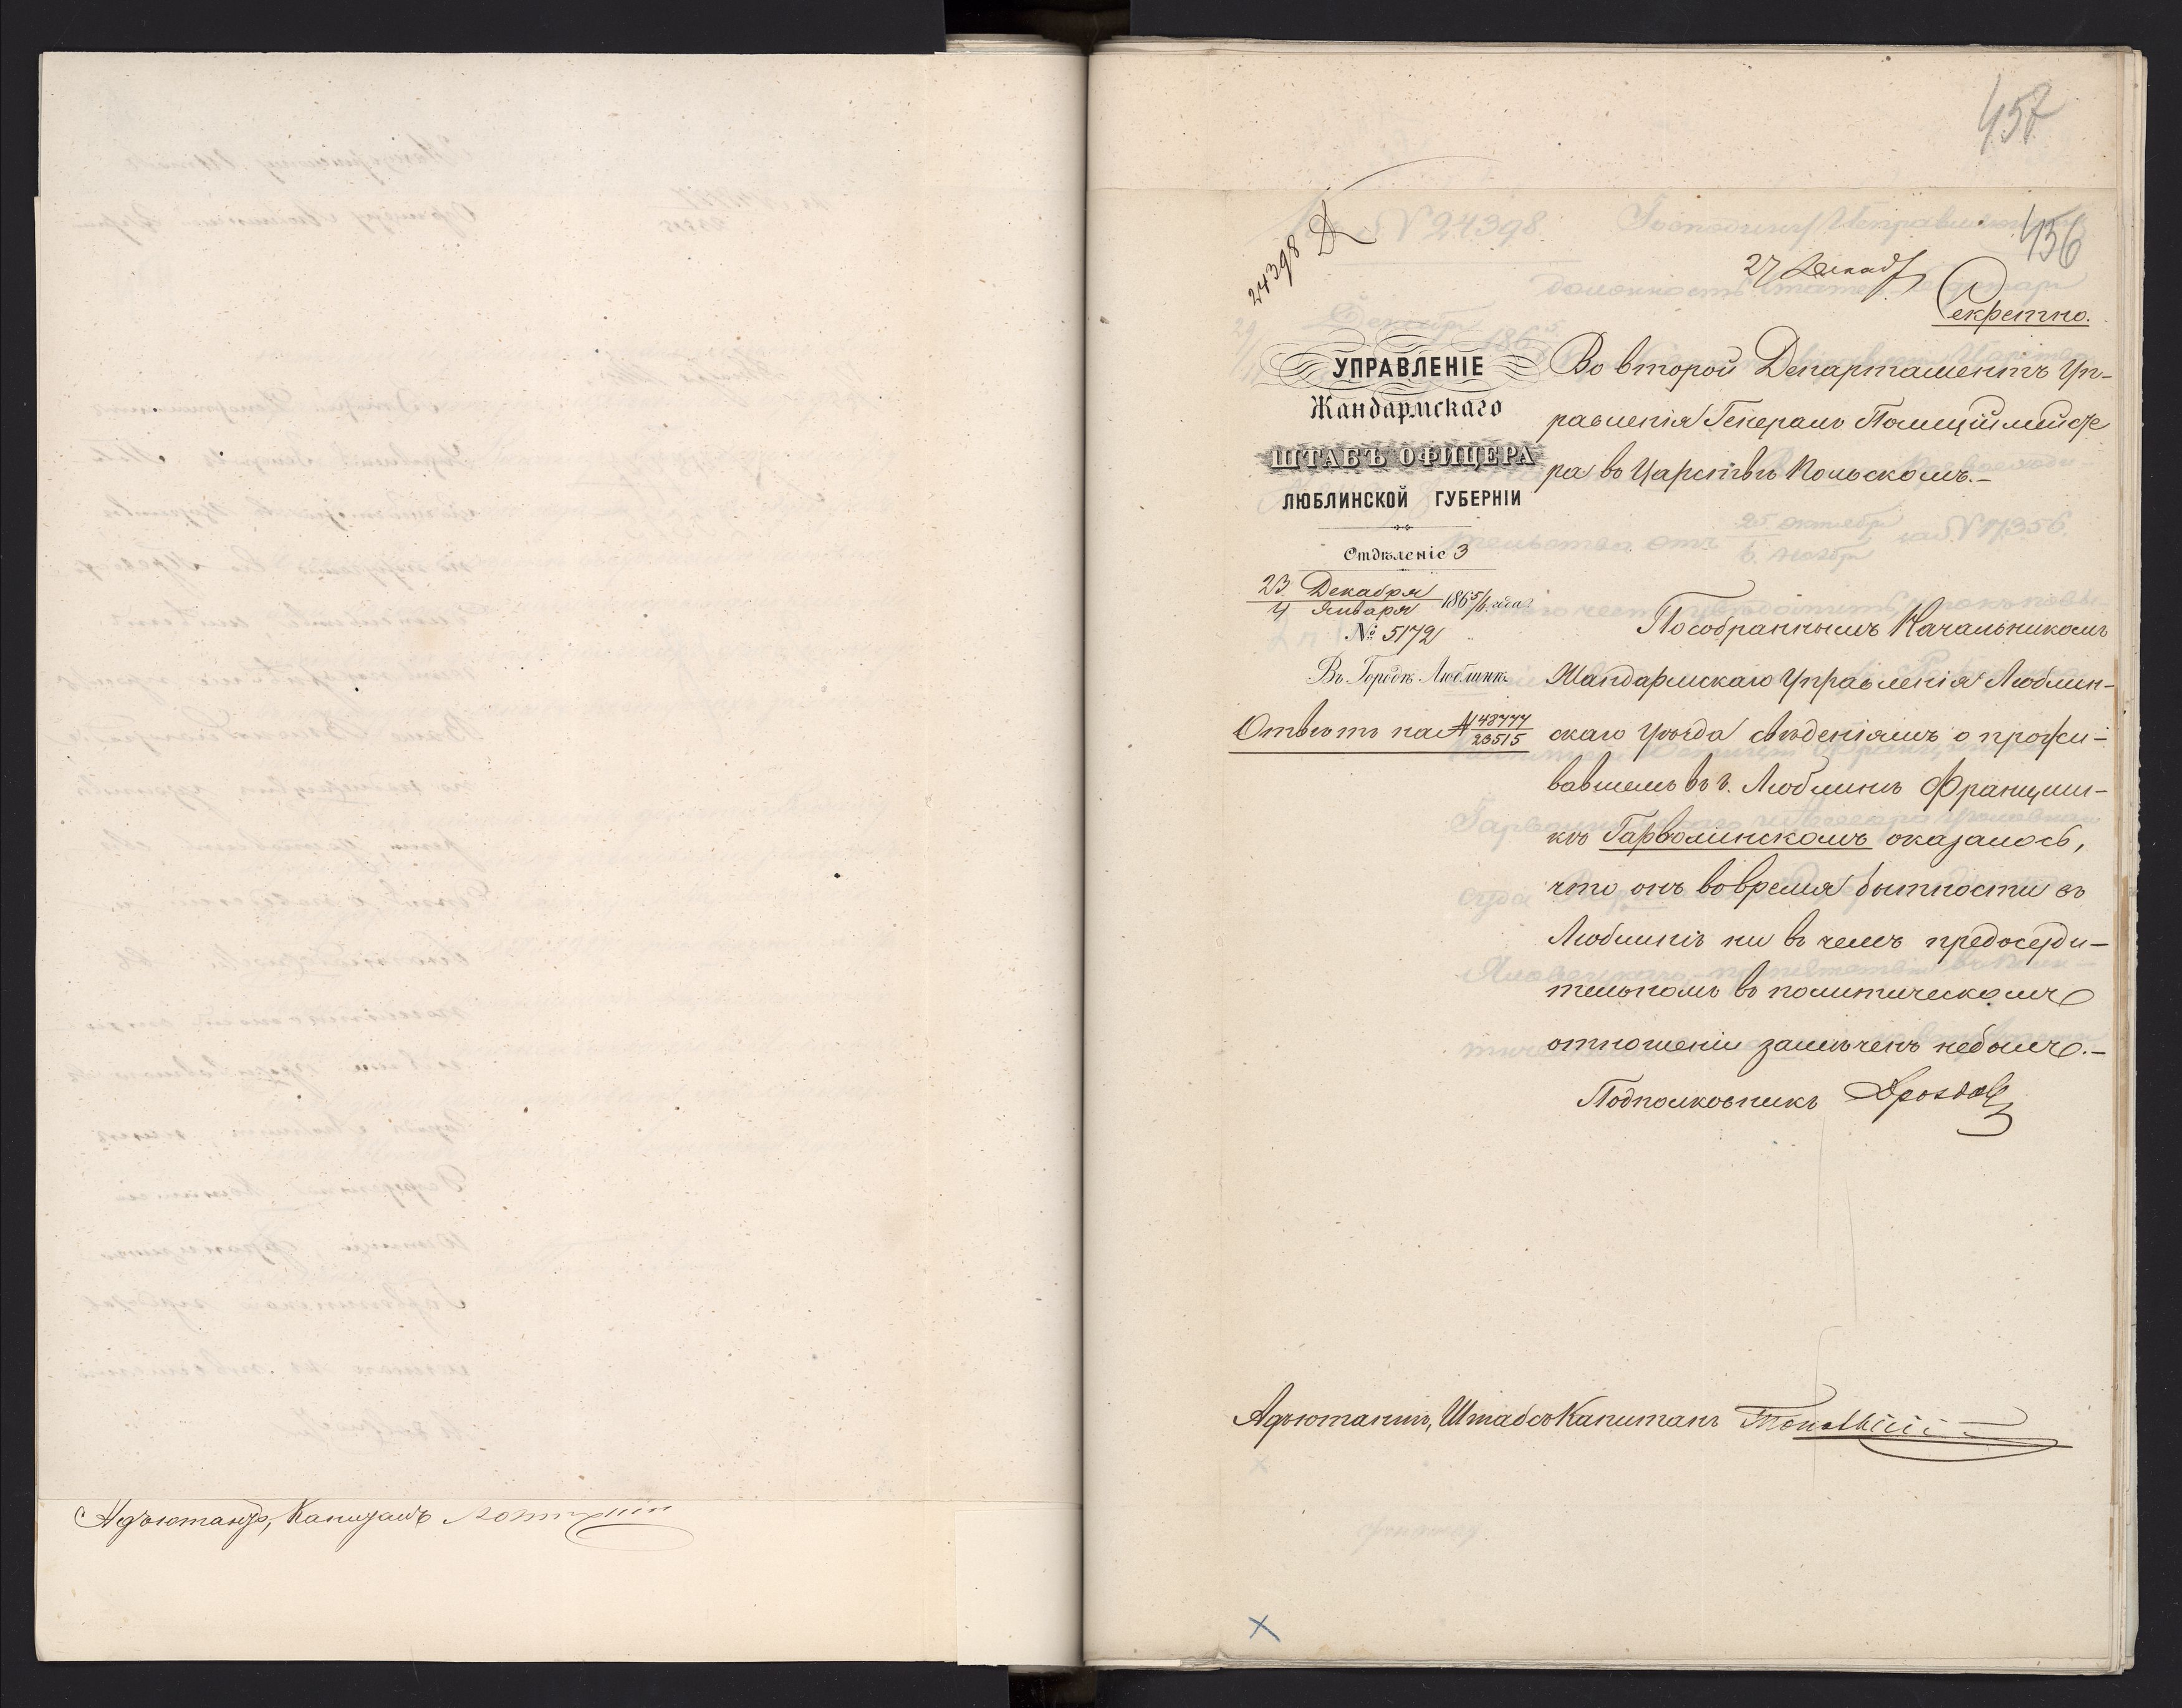 Адъютантъ, Капитанъ
457
456
24398
27 Декаб
Секретно.
УПРАВЛЕНІЕ
Жандармскаго
ШТАБЪ ОФИЦЕРА
ЛЮБЛИНСКОЙ ГУБЕРНІИ
Отдѣленіе 3
23 Декабря
4 Января 1865/6 года
№ 5172
Въ Городѣ Люблинѣ
Отвѣтъ на № 48777
23515
Во второй Департаментъ Уп-
равленія Генералъ Полиціймейсте
ра въ Царствѣ Польскомъ.-
По собраннымъ Начальникомъ
Жандармскаго Управленія Люблин-
скаго Уѣзда свѣденіямъ о прожи-
вавшемъ въ г. Люблинѣ Францыш-
кѣ Гарволинскомъ оказалось,
что онъ во время бытности въ
Люблинѣ ни въ чемъ предосуди-
тельномъ въ политическомъ
отношеніи замѣченъ небылъ.-
Подполковникъ Дроздов
Адъютантъ, Штабсъ Капитанъ